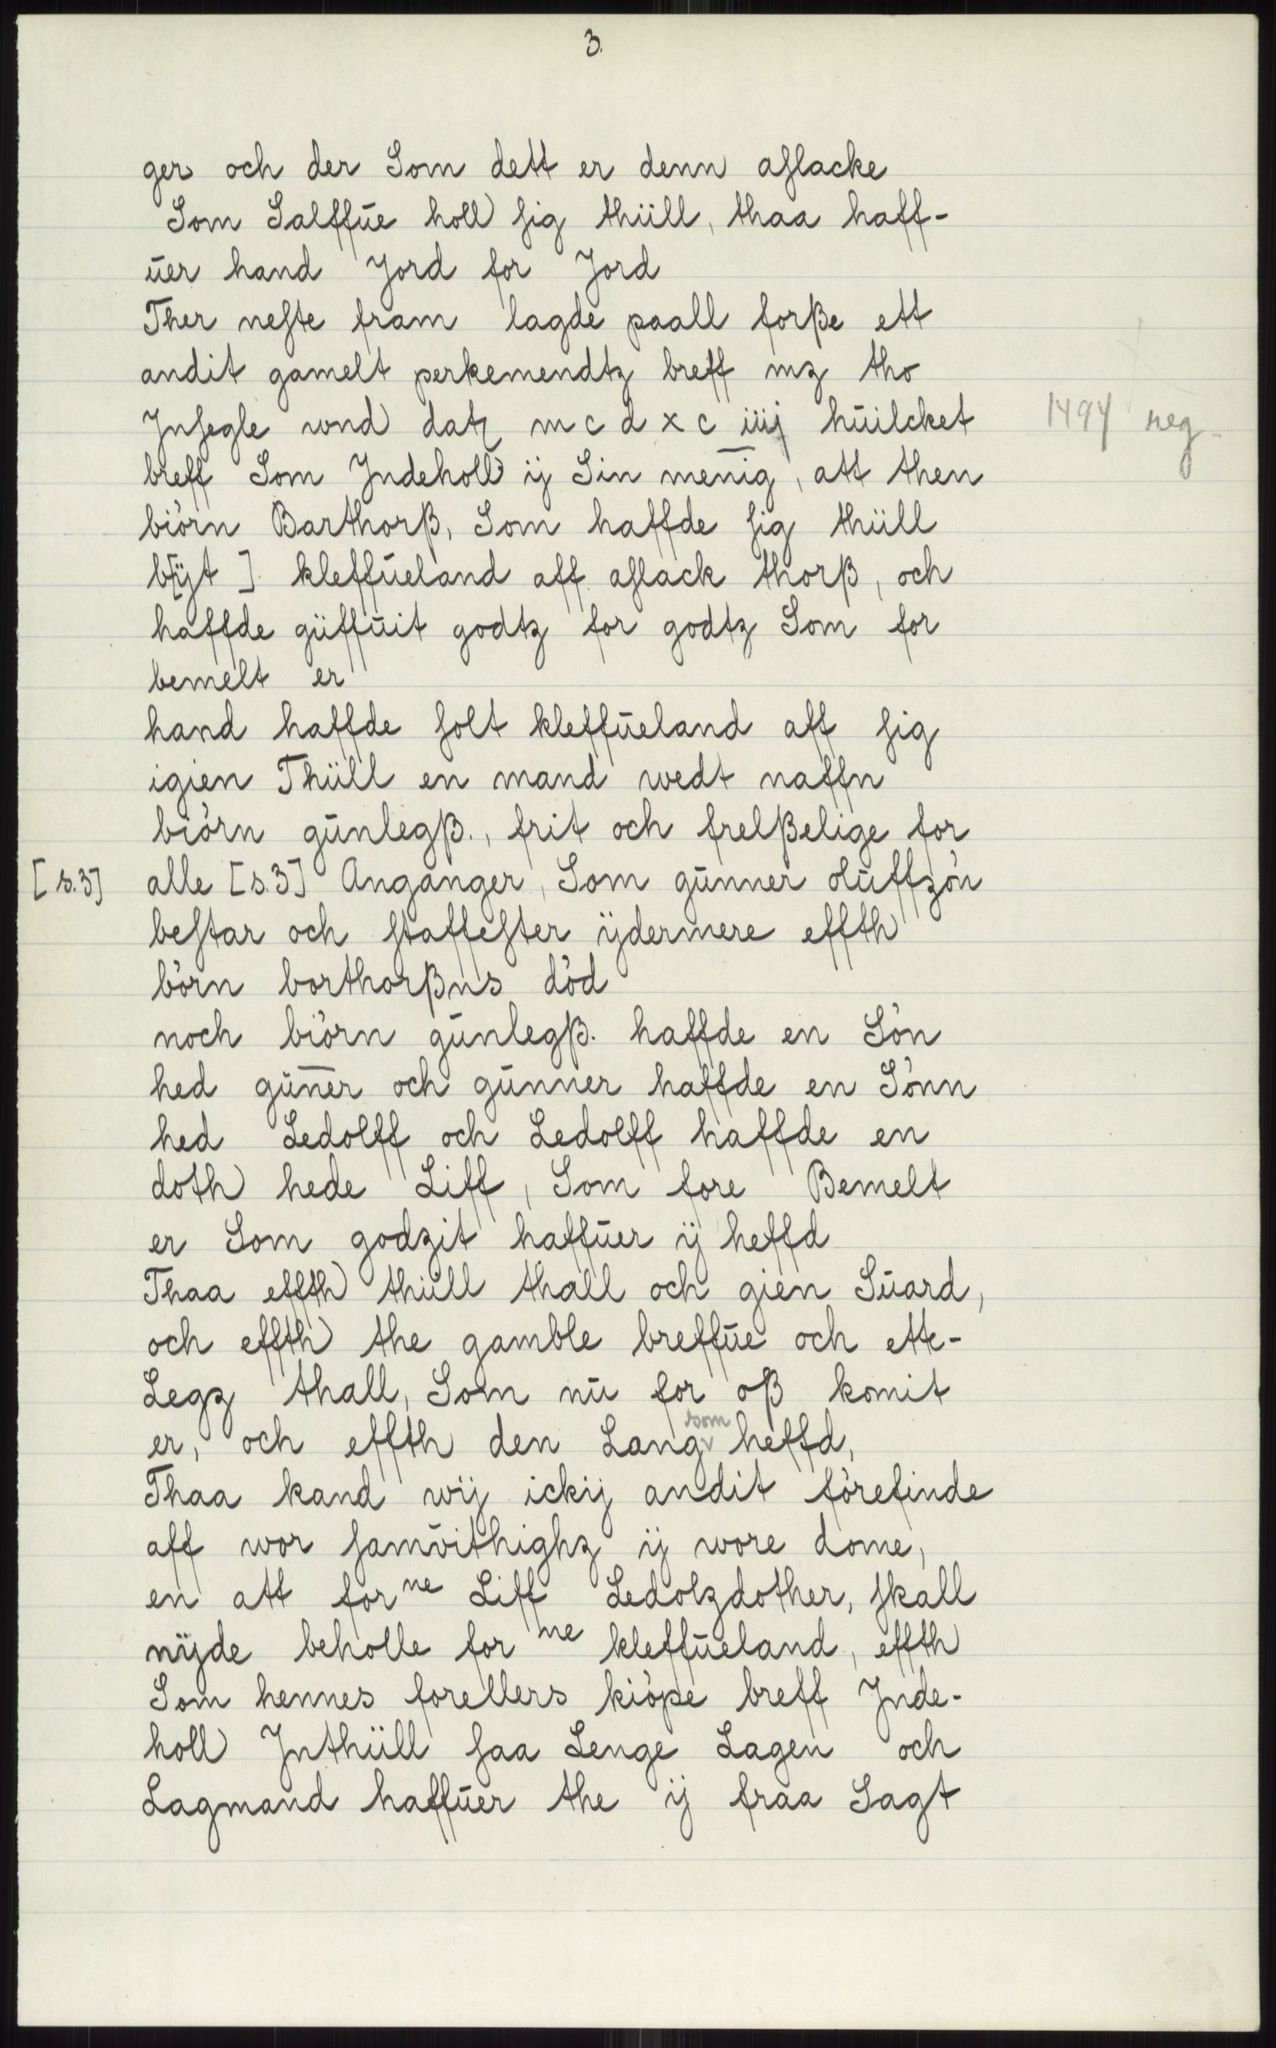 3.
ger och der Som dett er denn aslacke
Som Salffūe holl sig thüll, thaa haff-
ūer hand Jord for Jord
Ther neste fram lagde paall forße ett
andit gamelt perkemendtz breff mz tho
Jnsegle wnd datz m c d x c iiij hūilcket 1494 neg
breff Som Jndeholl ij Sin menig, att then
biörn Barthorß, Som haffde sig thüll
b[ÿt] kleffūeland aff aslack thorß, och
haffde güffūit godtz for godtz Som for
bemelt er
hand haffde solt kleffūeland aff sig
igien Thüll en mand wedt naffn
biörn gūnlegß., frit och frelßelige for
[s.3] alle [s.3] Anganger, Som gūnner olūffzön
bestar och staffester ÿdermere effth
börn borthorßns död
noch biörn gūnlegß. haffde en Sön
hed gūner och gūnner haffde en Sönn
hed Ledolff och Ledolff haffde en
doth hede Liff, Som fore Bemelt
er Som godzit haffūer ij heffd
Thaa effth thüll thall och gien Sūard,
och effth the gamble breffūe och ette-
Legz thall, Som nū for oß komit
er, och effth den Lang som heffd,
Thaa kand wij ickij andit förefinde
aff wor samvithighz ij wore dome,
en att for ne Liff Ledolzdother, skall
nÿde beholle for ne kleffūeland, effth
Som hennes forellers kiöpe breff Jnde-
holl Jnthüll saa Lenge Lagen och
Lagmand haffūer the ij fraa Sagt